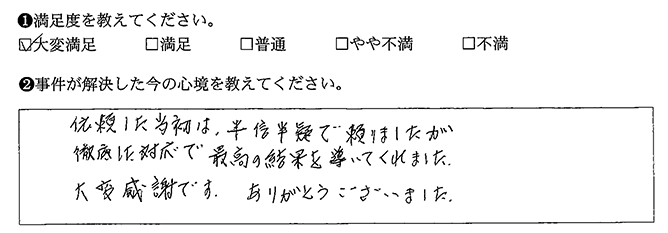 ❶満足度を教えてください。
☑大変満足 □満足 □普通 □やや不満 □不満
❷事件が解決した今の心境を教えてください。
依頼した当初は、半信半疑で頼りましたが
徹底した対応で最高の結果を導いてくれました。
大変感謝です。ありがとうございました。